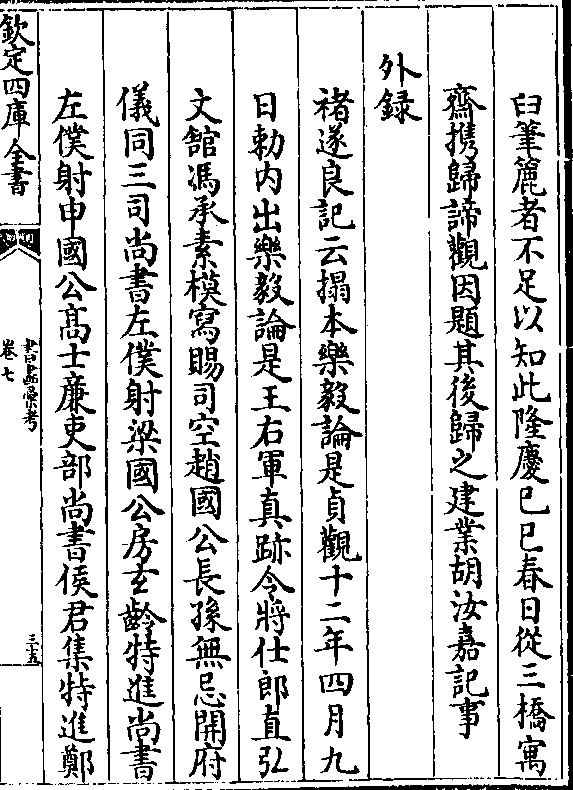 臼筆麄者不足以知此隆慶已巳春日從三橋寓
齋携歸諦觀因題其後歸之建業胡汝嘉記事
外録
褚遂良記云搨本樂毅論是貞觀十二年四月九
日勅内出樂毅論是王右軍真跡令將仕郎直弘
文舘馮承素模寫賜司空趙國公長孫無忌開府
儀同三司尚書左僕射梁國公房玄齡特進尚書
左僕射申國公髙士廉吏部尚書侯君集特進鄭
欽定四庫全書
書畫彙考
卷七
三十五